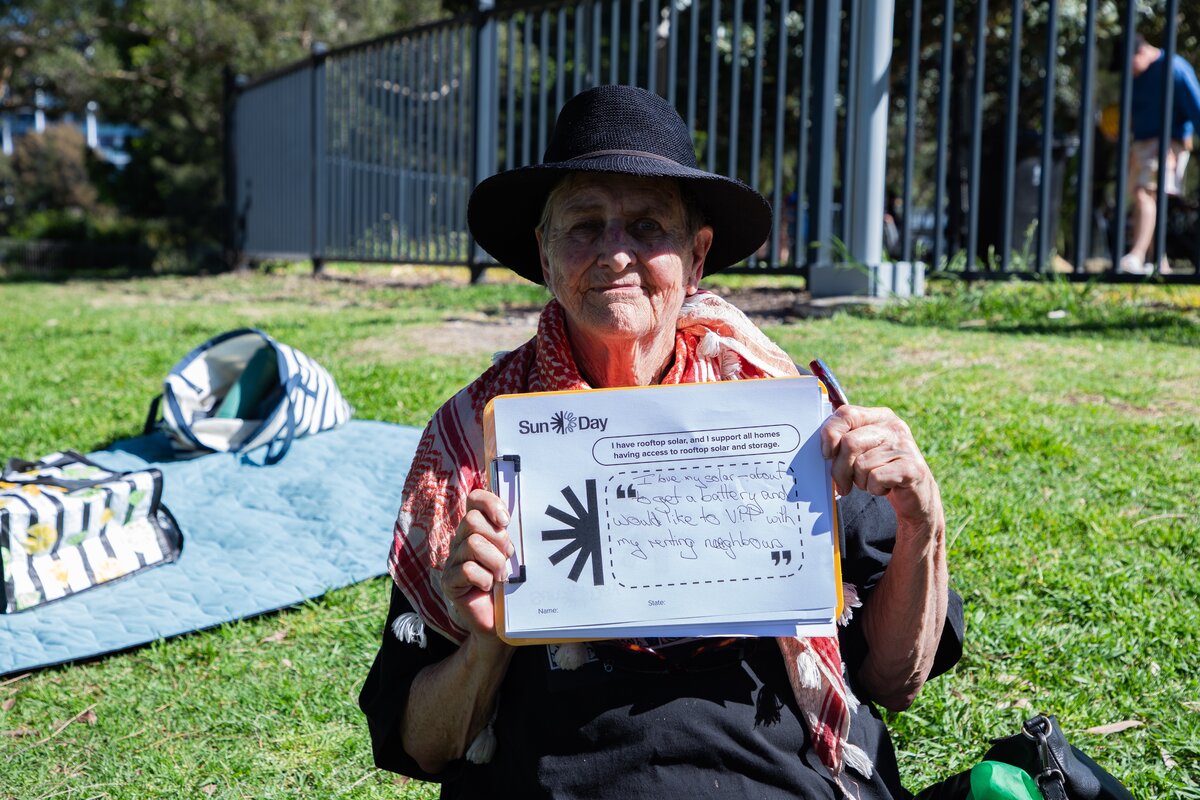 Sun Day
I have rooftop solar, and I support all homes
having access to rooftop solar and storage.
“I love my solar - about
to get a battery and
would like to V.P.P with
my renting neighbours”
Name:
State: